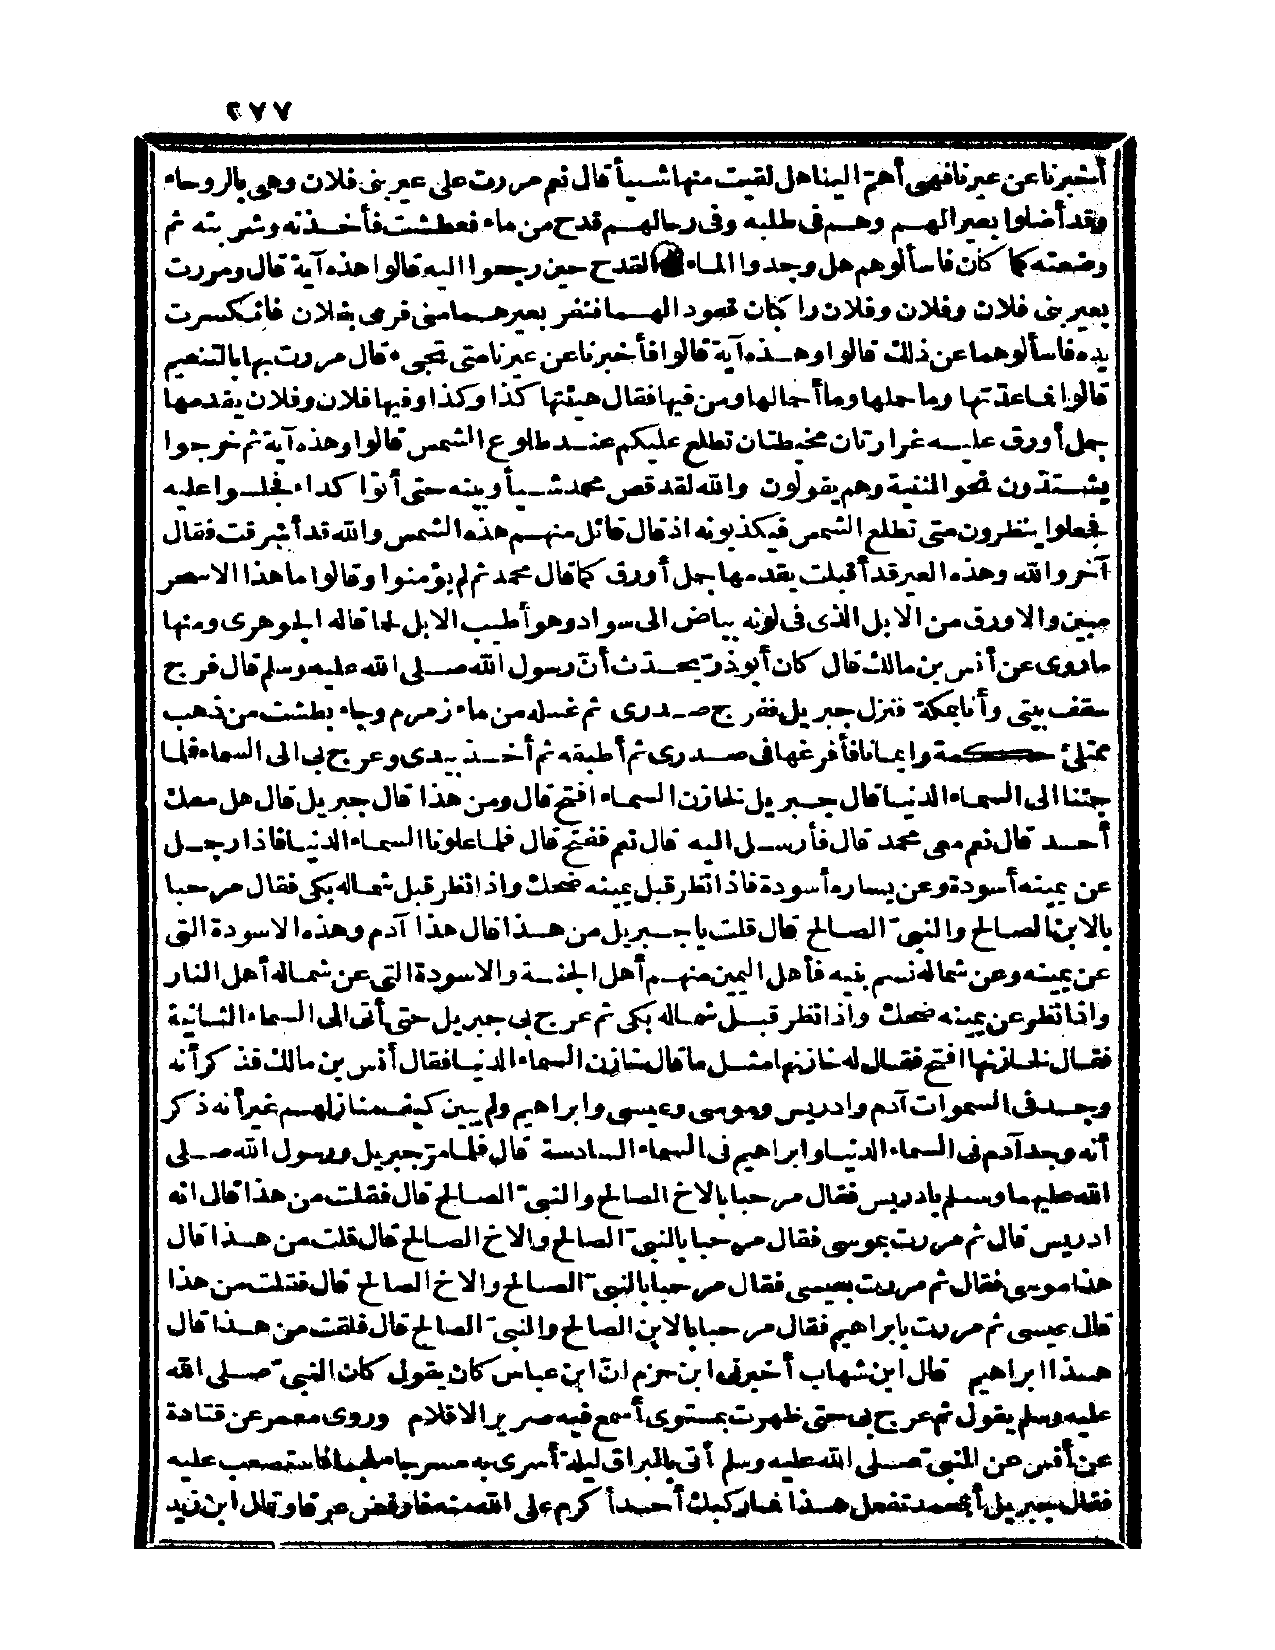 ٢٧٧
أخبرنا عن عيرنا فهى أهمّ الينا هل لقيت منها شيأ قال نم مررت على عير بنى فلان وهى بالروحاء
وقد أضلوا بعيرا لهم وهم فى طلبه وفى رحالهم قدح من ماء فعطشت فأخذته وشربته ثم
وضعته كما كان فاسألوهم هل وجدوا الماء القدح حين رجعوا اليه قالوا هذه آية قال ومررت
بعير بنى فلان وفلان وفلان راكبان قعودا لهما فنفر بعيرهما منى فرمى بفلان فانكسرت
يده فاسألوهما عن ذلك قالوا وهذه آية قالوا فأخبرنا عن عيرنا متى تجىء قال مررت بها بالتنعيم
قالوا فاعدّتها وما حملها وما أحمالها ومن فيها فقال هيئتها كذا وكذا وفيها فلان وفلان يقدمها
جمل أورق عليه غرارتان مخيطتان تطلع عليكم عند طلوع الشمس قالوا وهذه آية ثم خرجوا
يشتدّون نحو الثنية وهم يقولون والله لقد قص محمد شيأ وبينه حتى أتوا كداء فجلسوا عليه
فجعلوا ينظرون متى تطلع الشمس فيكذبونه اذ قال قائل منهم هذه الشمس والله قد أشرقت فقال
آخر والله وهذه العير قد أقبلت يقدمها جمل أورق كما قال محمد ثم لم يؤمنوا وقالوا ما هذا الا سحر
مبين والاورق من الابل الذى فى لونه بياض الى سواد وهو أطيب الابل لحما قاله الجوهرى ومنها
ما روى عن أنس بن مالك قال كان أبو ذرّ يحدث أنّ رسول الله صلى الله عليه وسلم قال فرج
سقف بيتى وأنا بمكة فنزل جبريل ففرج صدرى ثم غسله من ماء زمزم وجاء بطشت من ذهب
ممتلئ حكمة وايمانا فأفرغها فى صدرى ثم أطبقه ثم أخذ بيدى وعرج بى الى السماء فلما
جئنا الى السماء الدنيا قال جبريل لخازن السماء افتح قال ومن هذا قال جبريل قال هل معك
أحد قال نم معى محمد قال فأرسل اليه قال نم ففتح قال فلما علونا السماء الدنيا فاذا رجل
عن يمينه أسودة وعن يساره أسودة فاذا نظر قبل يمينه ضحك واذا نظر قبل شماله بكى فقال مرحبا
بالابن الصالح والنبىّ الصالح قال قلت يا جبريل من هذا قال هذا آدم وهذه الاسودة التى
عن يمينه وعن شماله نسم بنيه فأهل اليمين منهم أهل الجنة والاسودة التى عن شماله أهل النار
واذا نظر عن يمينه ضحك واذا نظر قبل شماله بكى ثم عرج بى جبريل حتى أتى الى السماء الثانية
فقال لخازنها افتح فقال له خازنها مثل ما قال خازن السماء الدنيا فقال أنس بن مالك فذكر أنه
وجد فى السموات آدم وادريس وموسى وعيسى وابراهيم ولم يبين كيف منازلهم غير أنه ذكر
أنه وجد آدم فى السماء الدنيا وابراهيم فى السماء السادسة قال فلما مرّ جبريل ورسول الله صلى
الله عليهما وسلم بادريس فقال مرحبا بالاخ الصالح والنبىّ الصالح قال فقلت من هذا قال انه
ادريس قال ثم مررت بموسى فقال مرحبا بالنبىّ الصالح والاخ الصالح قال قلت من هذا قال
هذا موسى فقال ثم مررت بعيسى فقال مرحبا بالنبىّ الصالح والاخ الصالح قال فقلت من هذا
قال عيسى ثم مررت بابراهيم فقال مرحبا بالابن الصالح والنبىّ الصالح قال فلقت من هذا قال
هذا ابراهيم قال ابن شهاب أخبرنى ابن حزم انّ ابن عباس كان يقول كان النبىّ صلى الله
عليه وسلم يقول ثم عرج بى حتى ظهرت بمستوى أسمع فيه صرير الاقلام وروى معمر عن قتادة
عن أنس عن النبىّ صلى الله عليه وسلم أتى بالبراق ليلة أسرى به مسرجا ملجما فاستصعب عليه
فقال جبريل أبمحمد تفعل هذا فما ركبك أحد أكرم على الله منه فارفض عرقا وقال ابن زيد